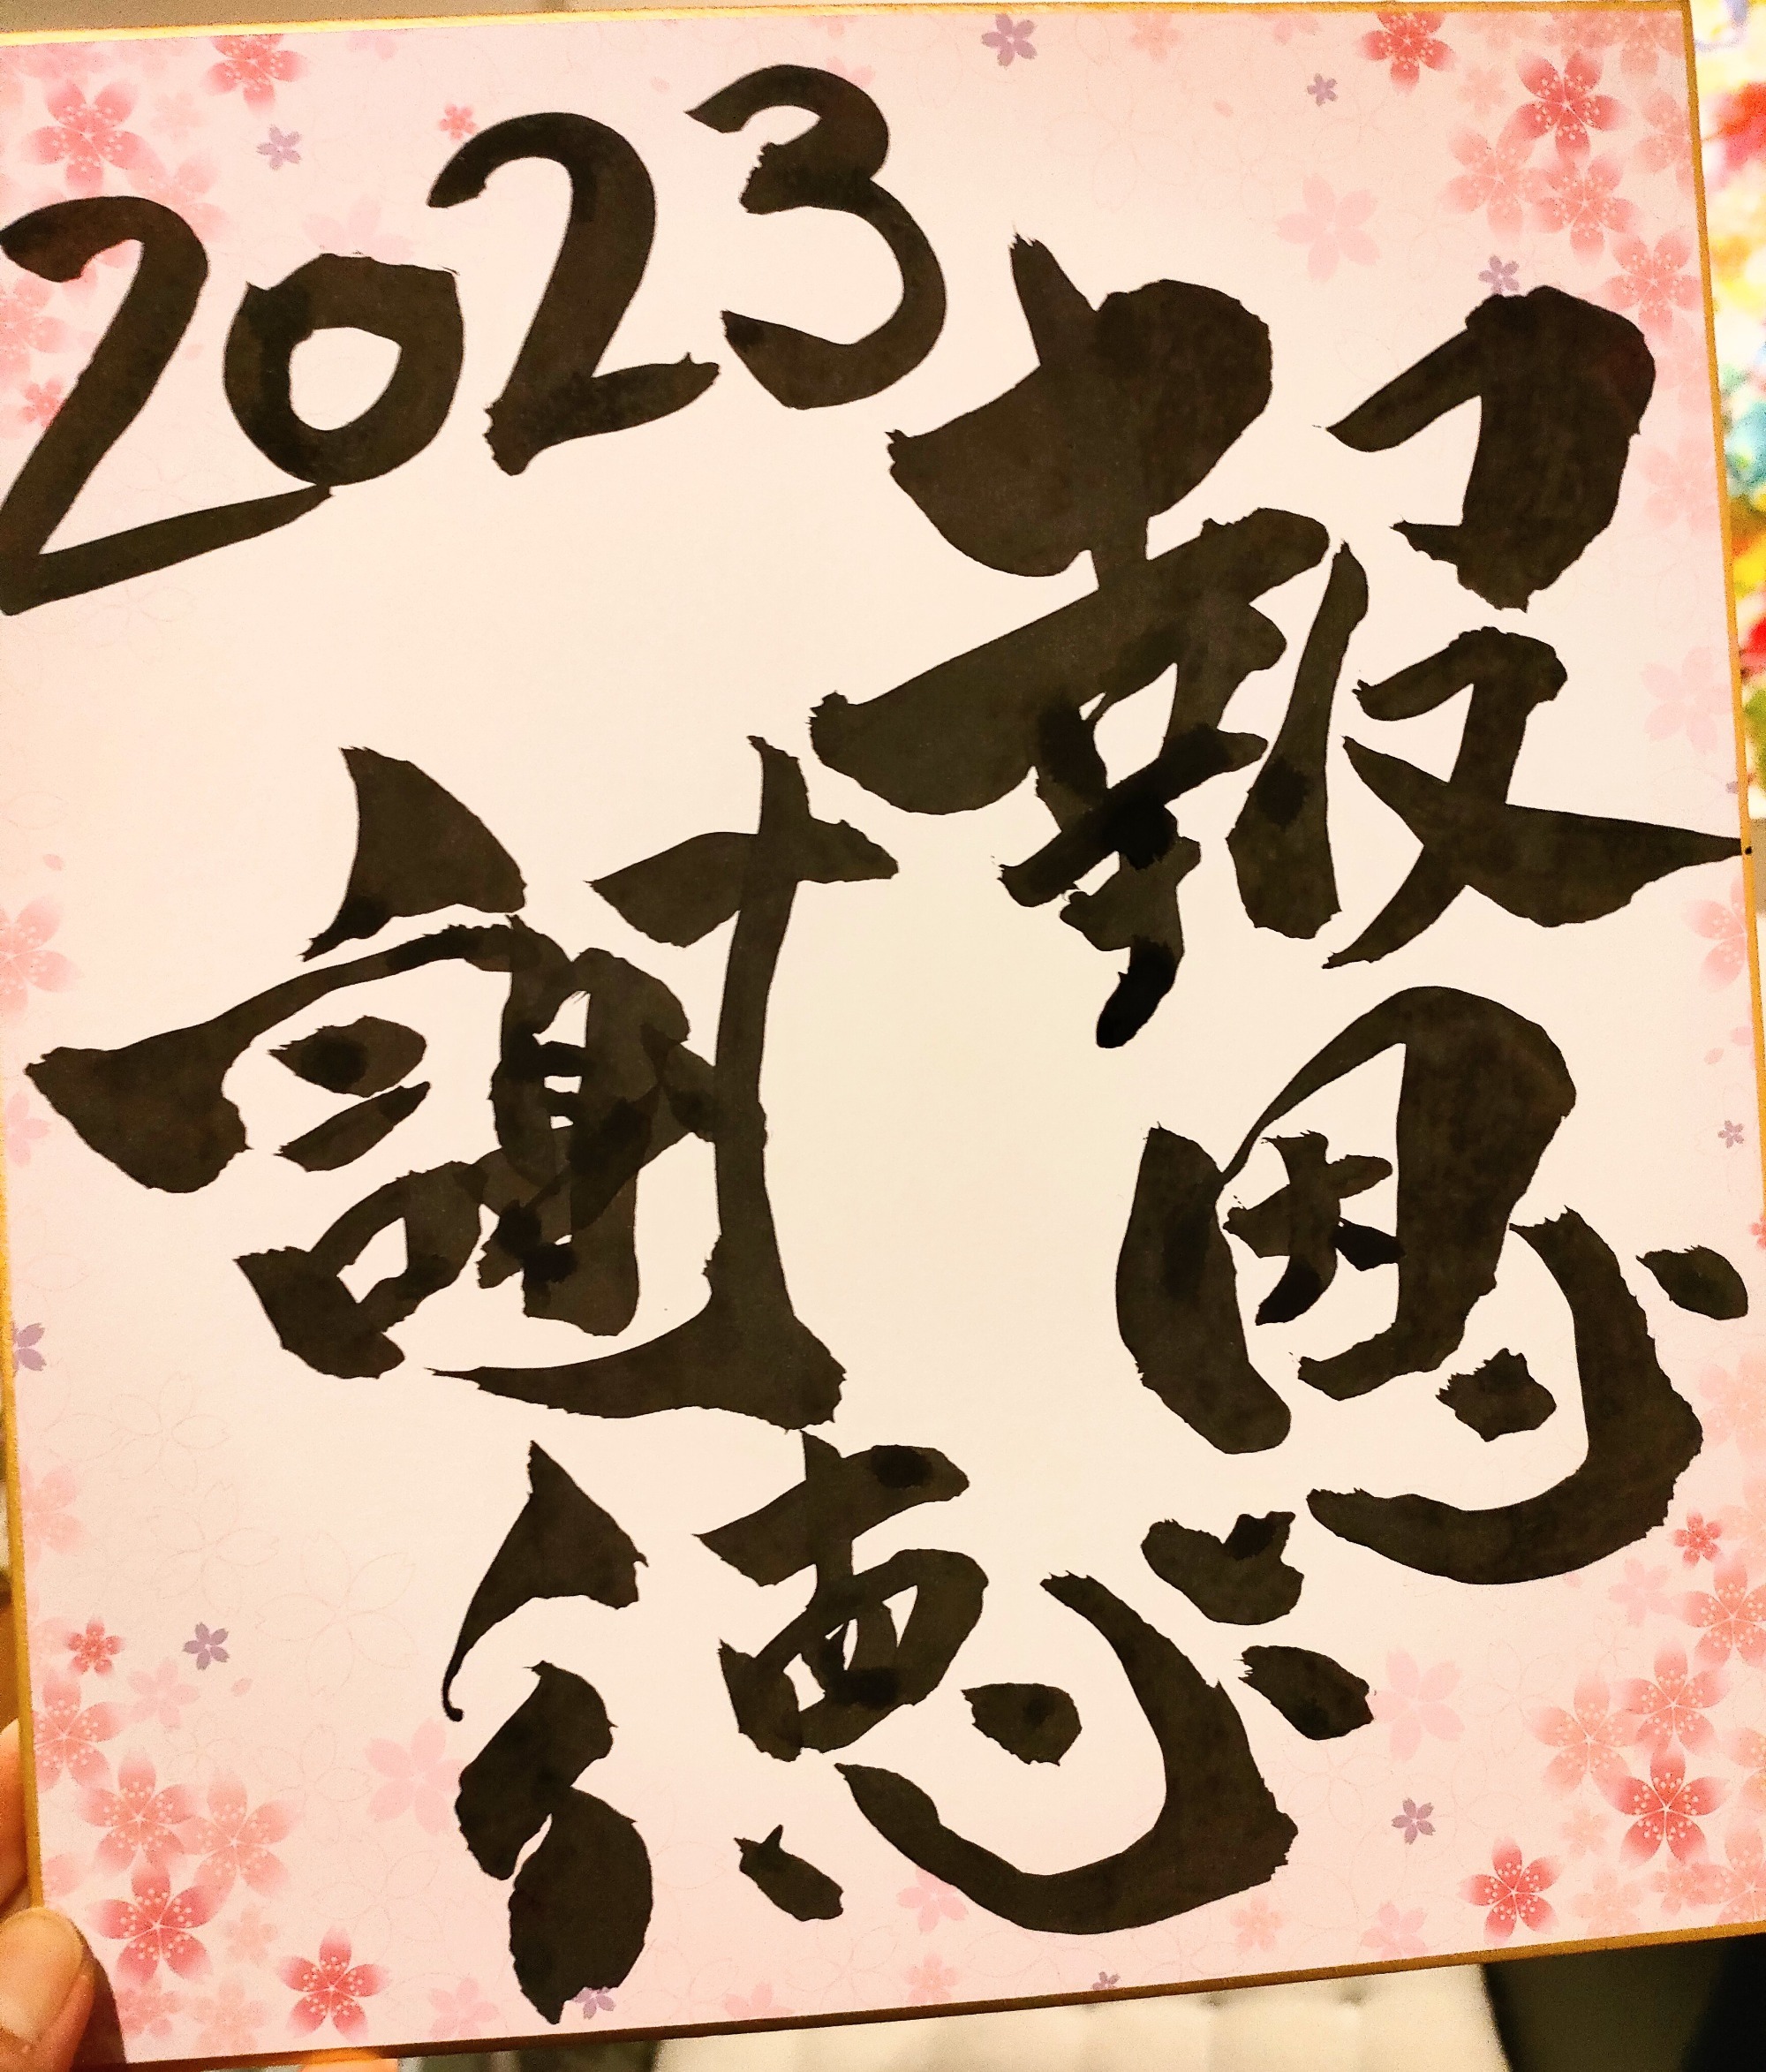 2023
報恩
謝徳